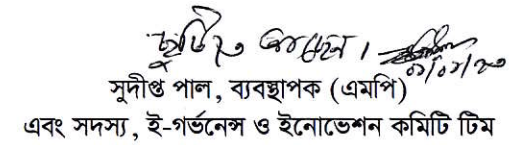 ছুটিতে আছেন।
সুদীপ্ত পাল, ব্যবস্থাপক (এমপি)
এবং সদস্য, ই-গর্ভনেন্স ও ইনোভেশন কমিটি টিম